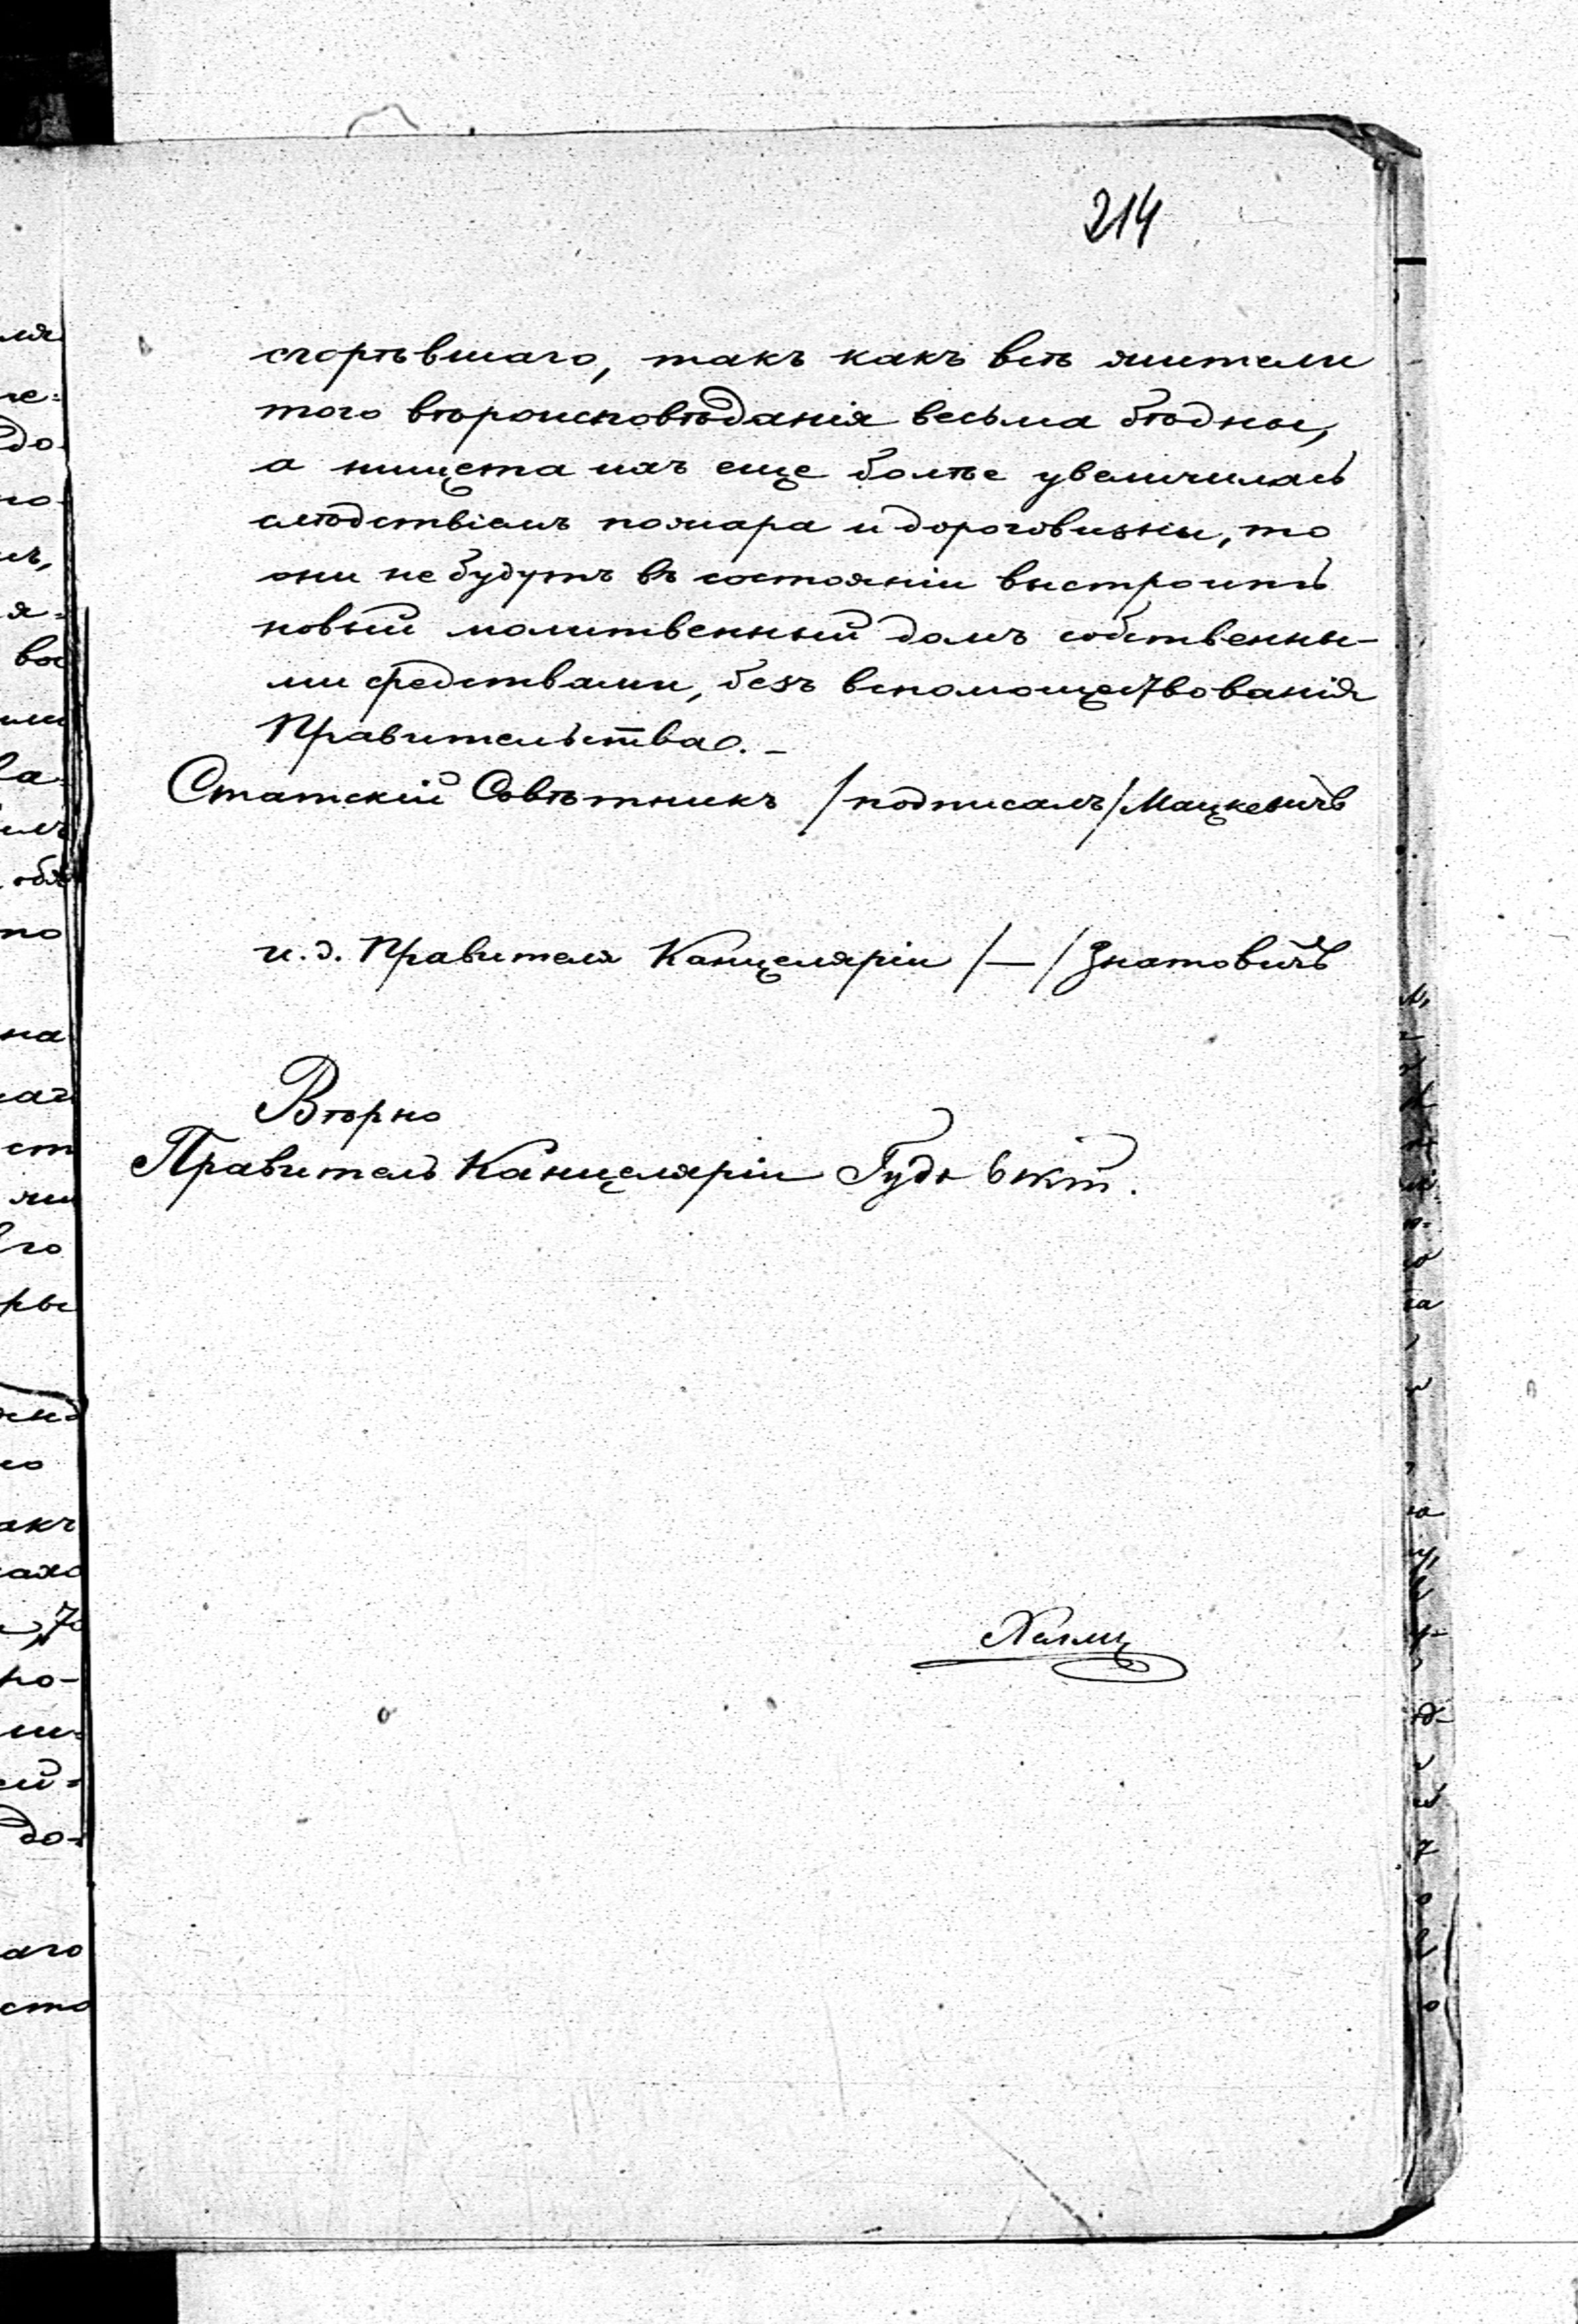 214
сгорѣвшаго, такъ какъ всѣ жители
того вѣроисповѣданія весьма бѣдны,
а нищета ихъ еще болѣе увеличилась
слѣдствіемъ пожара и дороговизны, то
они не будутъ въ состояніи выстроить
новый молитвенный домъ собственны-
ми средствами, безъ вспомоществованія
Правительства. –
Статскій Совѣтникъ /подписалъ/ Мацкевичъ
и. д. Правителя Канцеляріи /—/ Игнатовичъ
Вѣрно
Правитель Канцеляріи